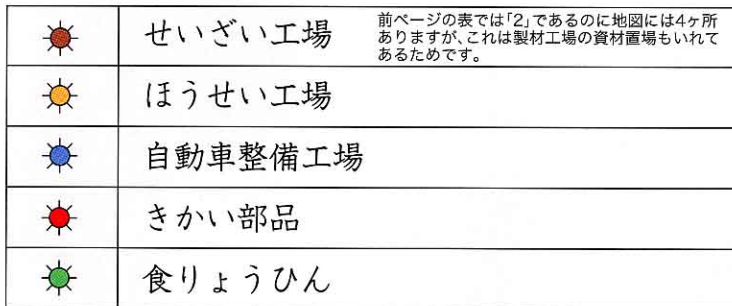 せいざい工場
前ページの表では「2」であるのに地図には4ヶ所
ありますが、これは製材工場の資材置場もいれて
あるためです。
ほうせい工場
自動車整備工場
きかい部品
食りょうひん